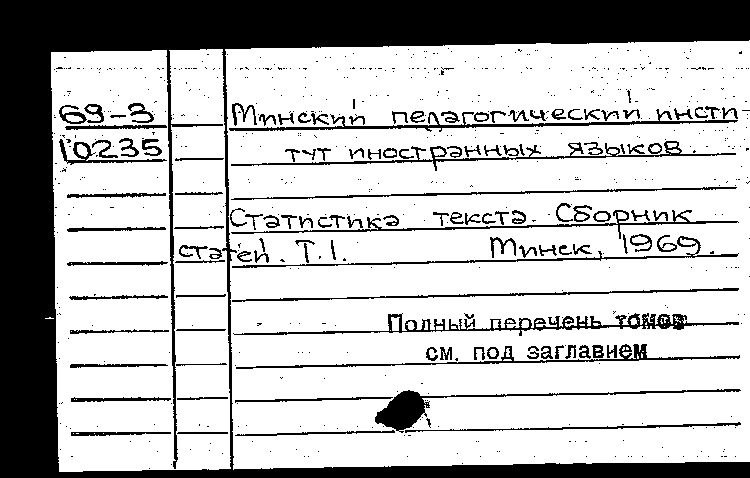 69-3 Минский педагогический инсти-
10235 тут иностранных языков.
Статистика текста. Сборник
статей. Т.1. Минск, 1969.
Полный перечень томов
см. под заглавием